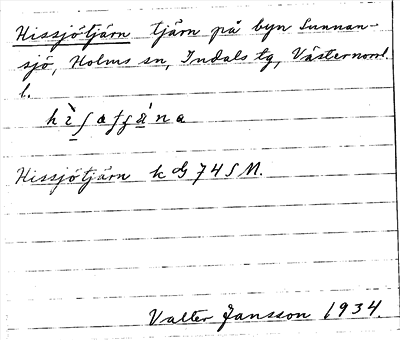 Hissjötjärn tjärn på byn Sunnan-
sjö, Holms sn, Indals tg, Västernorrl.
l.
Hissjötjärn k G 74 S M.
Valter Jansson 1934.